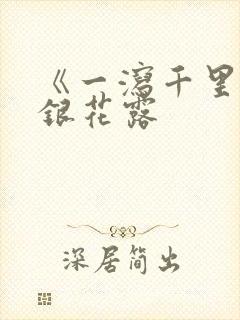 《一泻千里
银花露
深居简出